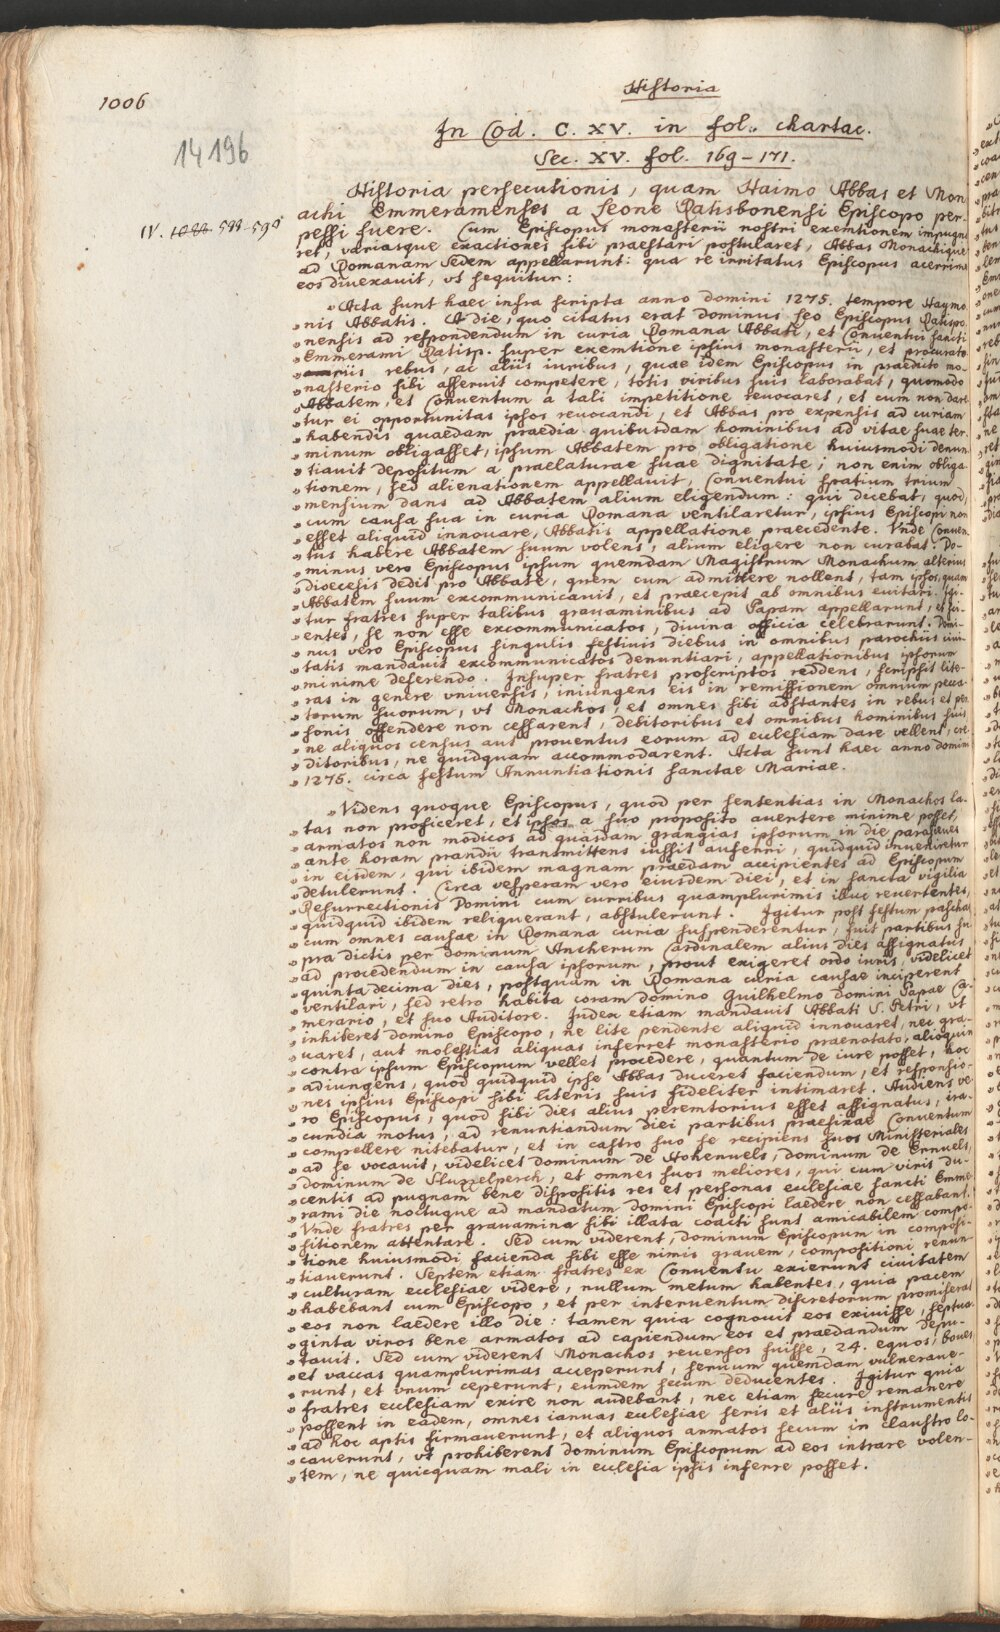 1006
Historia
In Cod. C. XV. in fol. chartac.
Sec. XV. fol. 169-171.
14196
IV. 588-590
Historia persecutionis, quam Haimo Abbas et Mon
achi Emmeramenses a Leone Ratisbonensi Episcopo per
pessi fuere. Cum Episcopus monasterii nostri exemtionem impugna
ret, variasque exactiones sibi praestari postularet, Abbas Monachique
ad Romanam Sedem appellarunt: qua re irritatus Episcopus acerrime
eos divexavit, vt sequitur:
„Acta sunt haec infra scripta anno domini 1275. tempore Haymo
„nis Abbatis. A die, quo citatus erat dominus Leo Episcopus Ratispo
„nensis ad respondendum in curia Romana Abbati, et Conventui sancti
„Emmerami Ratisp. super exemtione ipsius monasterii, et procurato
„riis rebus, ac aliis iuribus, quae idem Episcopus in praedicto mo-
„nasterio sibi asseruit competere, totis viribus suis laborabat, quomodo
„Abbatem, et Conventum a tali impetitione revocaret, et cum non dare
„tur ei opportunitas ipsos revocandi, et Abbas pro expensis ad curiam
„habendis quaedam praedia quibusdam hominibus ad vitae suae ter
„minum obligasset, ipsum Abbatem pro obligatione huiusmodi denun
„tiavit depositum a praelaturae suae dignitate; non enim obliga
„tionem, sed alienationem appellavit, Conventui spatium trium
„mensium dans ad Abbatem alium eligendum: qui dicebat, quod,
„cum causa sua in curia Romana ventilaretur, ipsius Episcopi non
„esset aliquid innovare, Abbatis appellatione praecedente. Vnde Conven
„tus habere Abbatem suum volens, alium eligere non curabat. Do-
„minus vero Episcopus ipsum quemdam Magistrum Monachum alterius
„dioecesis dedit pro Abbate, quem cum admittere nollent, tam ipsos, quam
„Abbatem suum excommunicavit, et praecepit ab omnibus evitari. Igi-
„tur fratres super talibus gravaminibus ad Papam appellarunt, et sci-
„entes, se non esse excommunicatos, divina officia celebrarunt. Domi-
„nus vero Episcopus singulis festivis diebus in omnibus parochiis civi
„tatis mandavit excommunicatos denuntiari, appellationibus ipsorum
„minime deferendo. Insuper fratres proscriptos reddens, scripsit lite-
„ras in genere vniversis, iniungens eis in remissionem omnium pecca
„torum suorum, vt Monachos, et omnes sibi adstantes in rebus et per
„sonis offendere non cessarent, debitoribus et omnibus hominibus suis
„ne aliquos census aut proventus eorum ad ecclesiam dare vellent, cre
„ditoribus, ne quidquam accommodarent. Acta sunt haec anno domini
„1275. circa festum Annuntiationis sanctae Mariae.
„Videns quoque Episcopus, quod per sententias in Monachos la-
„tas non proficeret, et ipsos a suo proposito avertere minime posset,
„armatos non modicos ad quasdam grangias ipsorum in die parasceues
„ante horam prandii transmittens iussit auferri, quidquid inveniretur
„in eisdem, qui ibidem magnam praedam accipientes ad Episcopum
„detulerunt. Circa vesperam vero eiusdem diei, et in sancta vigilia
„Resurrectionis Domini cum curribus quamplurimis illuc revertentes,
„quidquid ibidem reliquerant, abstulerunt. Igitur post festum paschae
„cum omnes causae in Romana curia suspenderentur, fuit partibus su
„pra dictis per dominum Ancherum Cardinalem alius dies assignatus,
„ad procedendum in causa ipsorum, prout exigeret ordo iuris, videlicet
„quinta decima dies, postquam in Romana curia causae inciperent
„ventilari, sed retro habita coram domino Guilhelmo domini Papae Ca-
„merario, et suo Auditore. Iudex etiam mandavit Abbati S. Petri, vt
„inhiberet domino Episcopo, ne lite pendente aliquid innovaret, nec gra-
„varet, aut molestias aliquas inferret monasterio praenotato, alioquin
„contra ipsum Episcopum vellet procedere, quantum de iure posset, hoc
„adiungens, quod quidquid ipse Abbas duceret faciendum, et responsio-
„nes ipsius Episcopi sibi literis suis fideliter intimaret. Audiens ve-
„ro Episcopus, quod sibi dies alius peremtorius esset assignatus, ira-
„cundia motus, ad renuntiandum diei partibus praefixae Conventum
„compellere nitebatur, et in castro suo se recipiens suos Ministeriales
„ad se vocavit, videlicet dominum de Hohenuels, dominum de Ernuels,
„dominum de Stuzzelperch, et omnes suos meliores, qui cum viris du-
„centis ad pugnam bene dispositis res et personas ecclesiae sancti Emme
„rami die noctuque ad mandatum domini Episcopi laedere non cessabant.
„Vnde fratres per gravamina sibi illata coacti sunt amicabilem compo-
„sitionem attentare. Sed cum viderent, dominum Episcopum in composi-
„tione huiusmodi facienda sibi esse nimis gravem, compositioni renun
„tiaverunt. Septem etiam fratres ex Conventu exierunt civitatem
„culturam ecclesiae videre, nullum metum habentes, quia pacem
„habebant cum Episcopo, et per interventum discretorum promiserat
„eos non laedere illo die: tamen quia cognovit eos exivisse, septua
„ginta viros bene armatos ad capiendum eos et praedandum depu-
„tavit. Sed cum viderent Monachos reversos fuisse, 24. equos, boves
„et vaccas quamplurimas acceperunt, servum quemdam vulnerave-
„runt, et vnum ceperunt, eumdem secum deducentes. Igitur quia
„fratres ecclesiam exire non audebant, nec etiam secure remanere
„possent in eadem, omnes ianuas ecclesiae seris et aliis instrumentis
„ad hoc aptis firmaverunt, et aliquos armatos secum in claustro lo-
„caverunt, vt prohiberent dominum Episcopum ad eos intrare volen-
„tem, ne quicquam mali in ecclesia ipsis inferre posset.